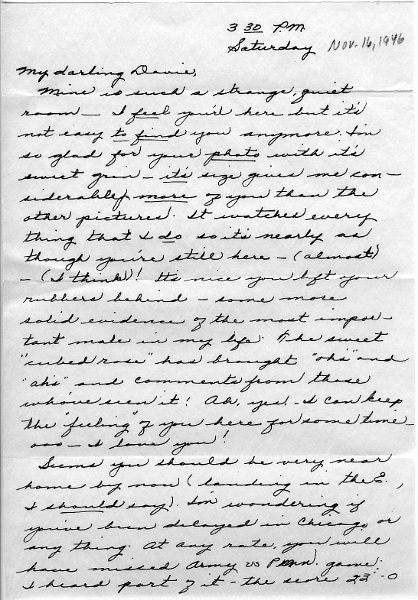 3 30 P.M.
Saturday Nov. 16, 1946
My darling Davie,
Mine is such a strange, quiet
room — I feel you'd here but it's
not easy to find you anymore. I'm
so glad for your photo with it's
sweet grin — it's size gives me con-
siderably more of you than the
other pictures. It watches every
thing that I do so its nearly as
though you're still here — (almost)
— (I think)! Its nice you left your
rubbers behind — some more
solid evidence of the most impor-
tant male in my life. The sweet
"cubed rose" has brought "ohs" and
"ah's" and comments from those
who've seen it! Ah, yes! I can keep
the "feeling" of you here for some time —
ooo — I love you!
Seems you should be very near
home by now (landing in the E.,
I should say). I'm wondering if
you've been delayed in Chicago or
any thing. At any rate, you will
have missed Army vs Penn. game.
I heard part of it — the score 22-0